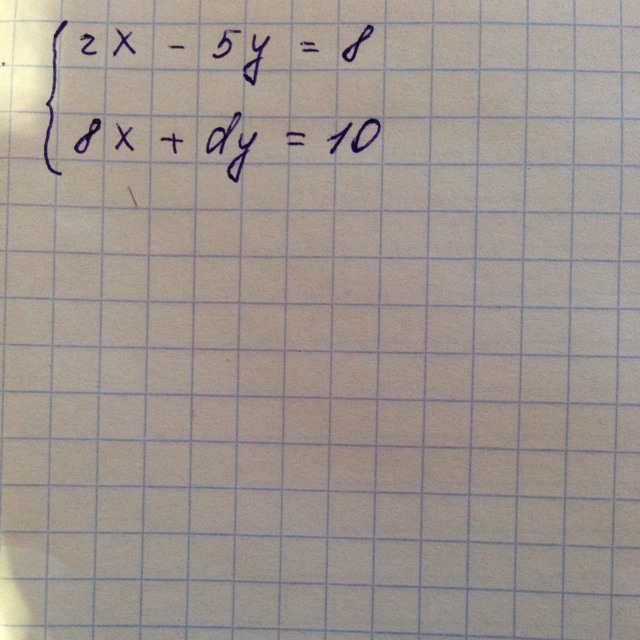 2x - 5y = 8
8x + dy = 10